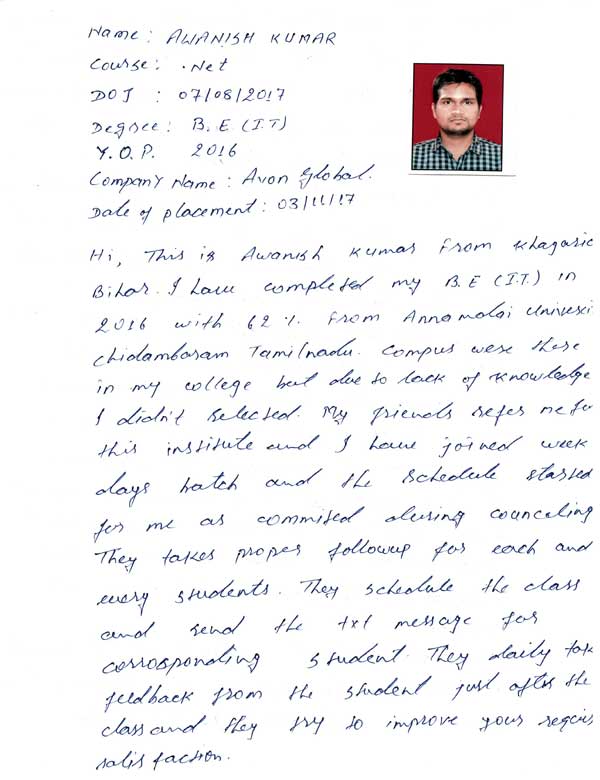 Name : AWANISH KUMAR
Course : .Net
DOJ : 07/08/2017
Degree : B.E (I.T)
Y.O.P. 2016
Company Name : Avon Global.
Date of placement : 03/11/17
Hi, This is Awanish Kumar from Khagaric
Bihar. I have completed my B.E (I.T.) in
2016 with 62 %. From Annamalai Universi
Chidambaram Tamilnadu. Campus were there
in my college but due to lack of knowledge
I didn't selected. My friends refer me for
this institute and I have joined week
days batch and the schedule started
for me as commited during counceling
They takes proper followup for each and
every students. They schedule the class
and send the txt message for
corrosponding student. They daily tak
feedback from the student just after the
class and they try to improve your requis
satisfaction.